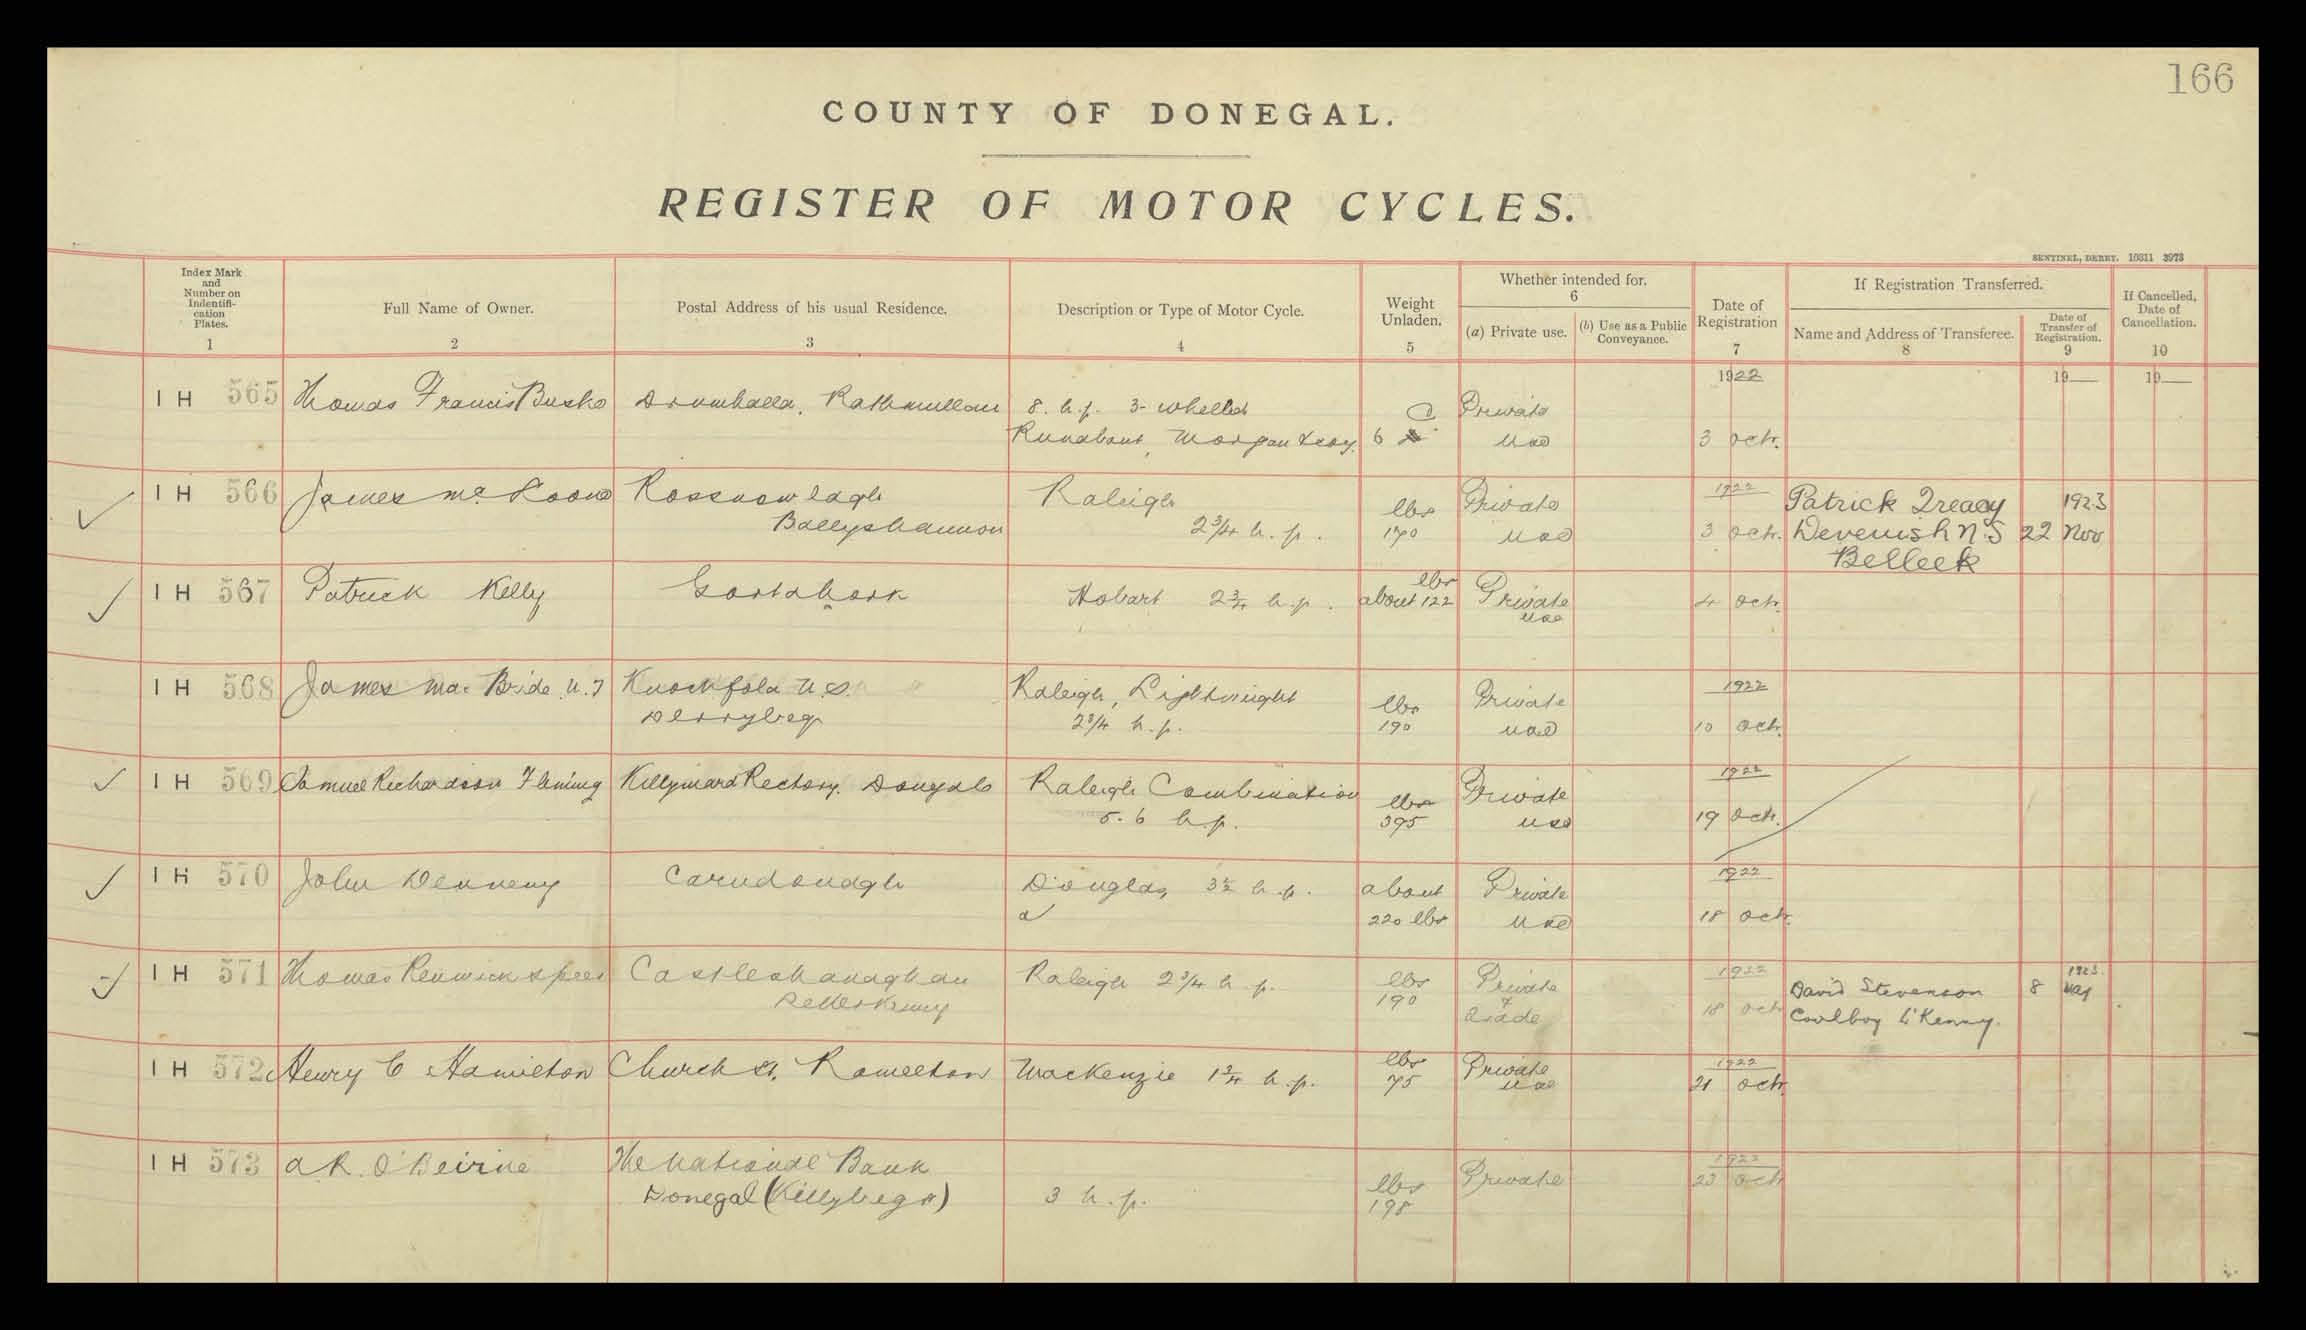 166
COUNTY OF DONEGAL.
REGISTER OF MOTOR CYCLES.
SENTINEL, DERRY. 10311 3973
Index Mark and Number on Indentifi-cation Plates. 1
Full Name of Owner. 2
Postal Address of his usual Residence. 3
Description or Type of Motor Cycle. 4
Weight Unladen. 5
Whether intended for. 6
(a) Private use.
(b) Use as a Public Conveyance.
Date of Registration 7
If Registration Transferred.
Name and Address of Transferee. 8
Date of Transfer of Registration. 9
If Cancelled, Date of Cancellation. 10
1922 19 19
IH 565 Thomas Francis Drumhalla, Rathmullan 8. h.p. 3- Private
Runabout, Morgan 6 use 3 Octr.
IH 566 James Rossnowlagh Raleigh lbs Private 1922 Patrick Treacy 1923
Ballyshannon 2 3/4 h.p. 170 use 3 Octr. Devenish N.S 22 Nov
Belleek
IH 567 Patrick Kelly Gortahork Hobart 2 3/4 h.p. lbs about 122 Private use 4 Octr.
IH 568 James Mac Bride N.T Knockfola N.S. Raleigh, Lightweight lbs Private 1922
Derrybeg 2 3/4 h.p. 190 use 10 Octr.
IH 569 Samuel Richardson Fleming Killymard Rectory. Donegal Raleigh Combination lbs Private 1922
5.6 h.p. 395 use 19 Octr.
IH 570 John Denneny Carndonagh Douglas h.p. about Private 1922
220 lbs use 18 Octr.
IH 571 Thomas Renwick Speer Castleshanaghan Raleigh 2 3/4 h.p. lbs Private 1922 David Stevenson 8 May 1923.
Letterkenny 190 & Trade 18 Octr Coolboy L'Kenny.
IH 572 Henry C Hamilton Church St, Ramelton Mackenzie h.p. lbs Private 1922
75 use 21 Octr.
IH 573 A.R. O'Beirne The National Bank Private 1922
Donegal (Killybegs) 3 h.p. lbs 198 23 Octr